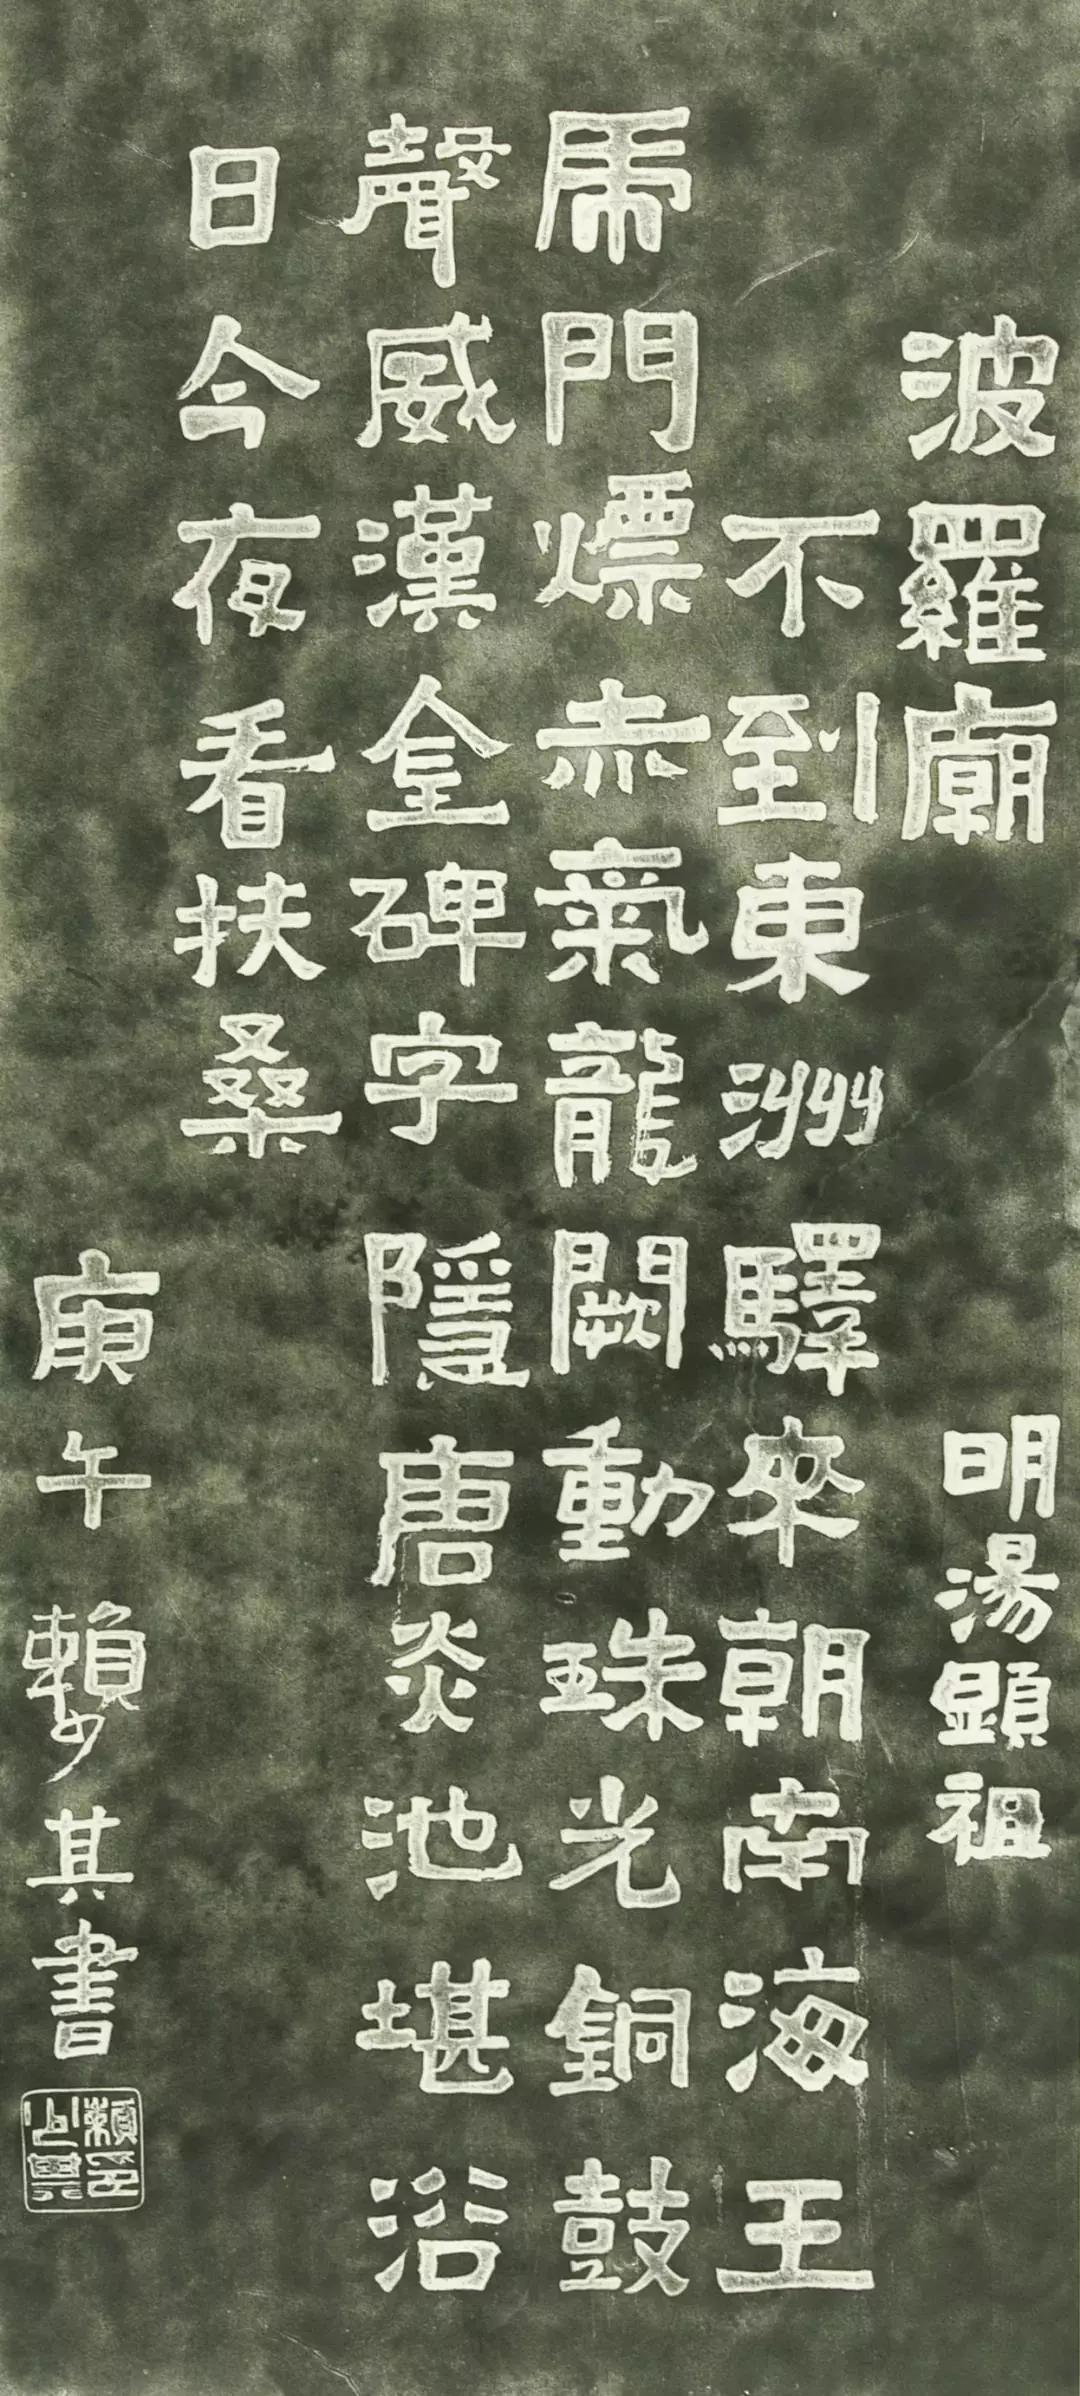 波羅廟
明湯顯祖
不到東洲驛來朝南海王
虎門熛赤氣龍闕動珠光銅鼓
聲威漢金碑字隱唐炎池堪浴
日今夜看扶桑
庚午 賴少其書
賴少其印